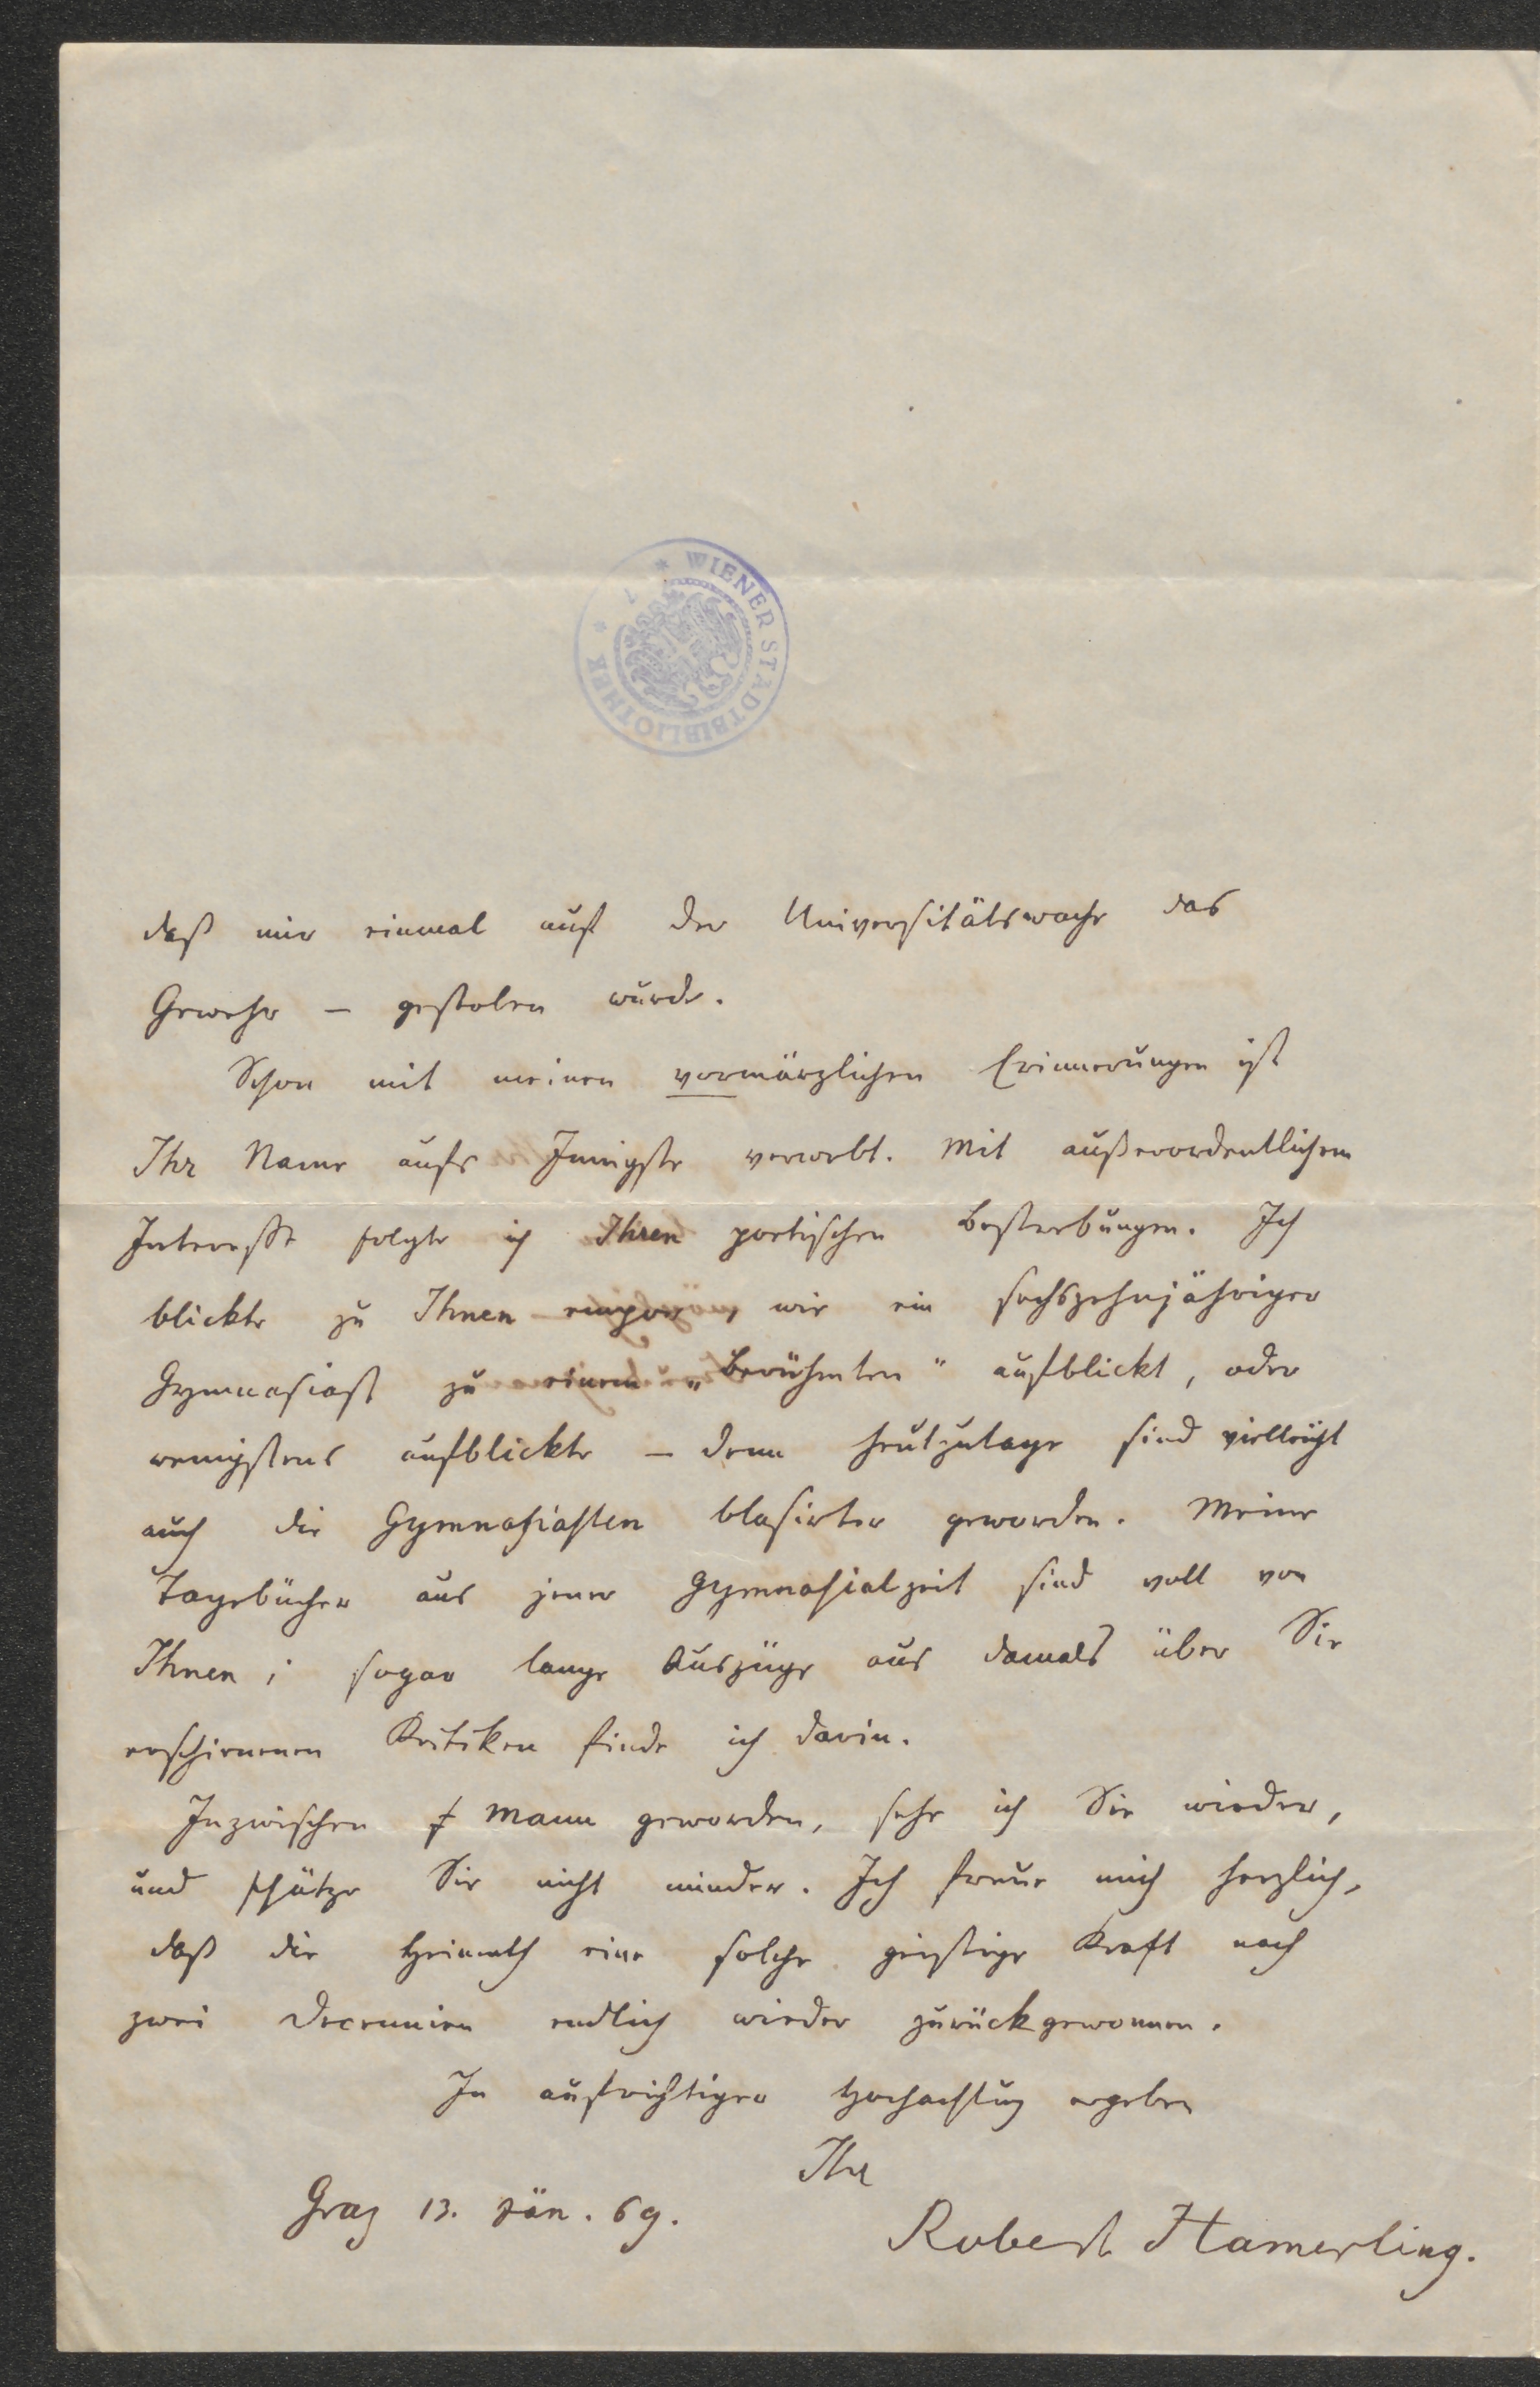 * WIENER STADTBIBLIOTHEK *
daß mir einmal auf der Universitätswache das
Gewehr – gestolen wurde.
Schon mit meinen vormärzlichen Erinnerungen ist
Ihr Name aufs Innigste verwebt. Mit außerordentlichem
Interesse folgte ich Ihren poetischen Bestrebungen. Ich
blickte zu Ihnen empor, wie ein sechszehnjähriger
Gymnasiast zu einem „Berühmten" aufblickt, oder
wenigstens aufblickte – denn heutzutage sind vielleicht
auch die Gymnasiasten blasirter geworden. Meine
Tagebücher aus jener Gymnasialzeit sind voll von
Ihnen; sogar lange Auszüge aus damals über Sie
erschienenen Kritiken finde ich darin.
Inzwischen Mann geworden, sehe ich Sie wieder,
und schätze Sie nicht minder. Ich freue mich herzlich,
daß die Heimath eine solche geistige Kraft nach
zwei Decennien endlich wieder zurückgewonnen.
In aufrichtiger Hochachtung ergeben
Ihr
Graz 13. Jän. 69.
Robert Hamerling.